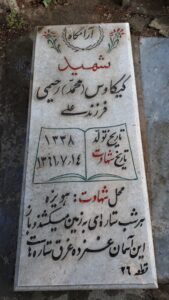 آرامگاه
شهید
کیکاوس (محمد) رحیمی
فرزند علی
تاریخ تولد ۱۳۳۸
تاریخ شهادت ۱۳۶۱/۷/۱۴
محل شهادت: هویزه
هر شب ستاره ای به زمین میکشند و باز
این آسمان غمزده غرق ستاره هاست
قطعه ۲۶